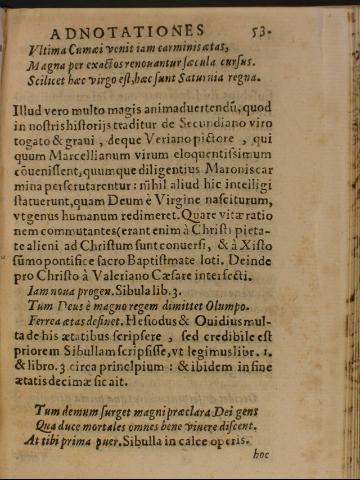 ADNOTATIONES 53.
Vltima Cumæi venit iam carminis ætas,
Magna per exactos renouantur sæcula cursus.
Scilicet hæc virgo est, hæc sunt Saturnia regna.
Illud vero multo magis animaduertendū, quod
in nostris historijs traditur de Secundiano viro
togato & graui, deque Veriano pictore, qui
quum Marcellianum virum eloquentissimum
cōuenissent, quumque diligentius Maronis car
mina perscrutarentur: nihil aliud hic intelligi
statuerunt, quam Deum è Virgine nasciturum,
vt genus humanum redimeret. Quare vitæ ratio
nem commutantes (erant enim à Christi pieta-
te alieni ad Christum sunt conuersi, & à Xisto
sūmo pontifice sacro Baptismate loti. Deinde
pro Christo à Valeriano Cæsare interfecti.
Iam noua progen. Sibula lib. 3.
Tum Deus è magno regem dimittet Olumpo.
Ferrea ætas desinet. Hesiodus & Ouidius mul-
ta de his ætatibus scripsere, sed credibile est
priorem Sibullam scripsisse, vt legimus libr. 1.
& libro. 3 circa principium: & ibidem in fine
ætatis decimæ sic ait.
Tum demum surget magni præclara Dei gens
Qua duce mortales omnes bene viuere discent.
At tibi prima puer. Sibulla in calce operis.
hoc